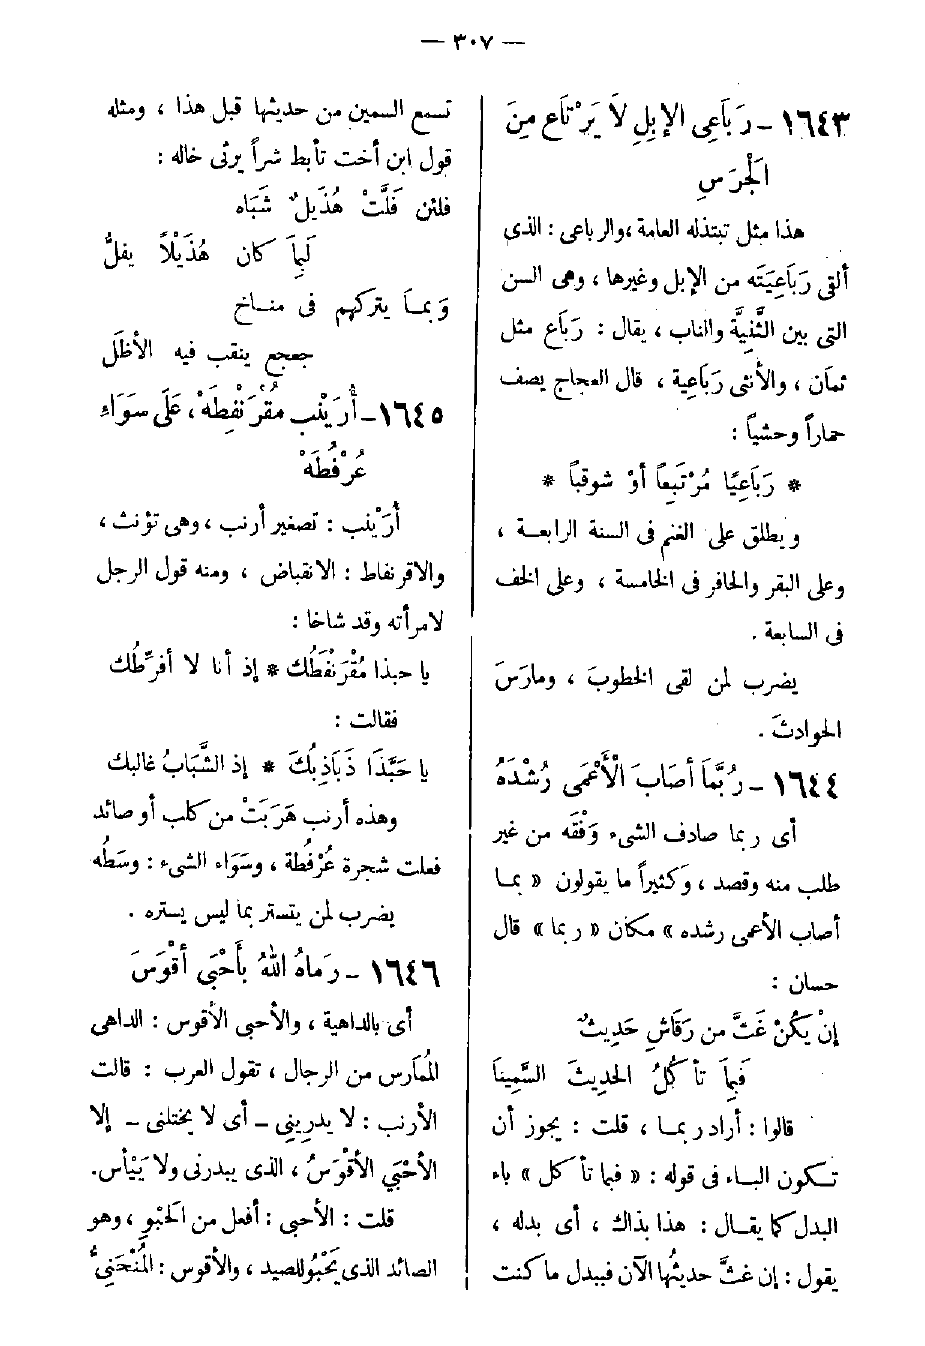 — ٣٠٧ —
١٦٤٣ – رَبَاعِى الإبِلِ لاَ يَرْتَاعُ مِنَ
الْجَرَسِ
هذا مثل تبتذله العامة ، والرباعى : الذى
ألقى رَبَاعِيَتَه من الإبل وغيرها ، وهى السن
التى بين الثَّنِيَّة والناب ، يقال : رَبَاع مثل
ثمان ، والأنثى رَبَاعِية ، قال العجاج يصف
حماراً وحشياً :
* رَبَاعِيًا مُرْتَبِعاً أوْ شوقباً *
ويطلق على الغنم فى السنة الرابعـة ،
وعلى البقر والحافر فى الخامسة ، وعلى الخف
فى السابعة .
يضرب لمن لقى الخطوبَ ، ومارَسَ
الحوادثَ .
١٦٤٤ – رُبَّمَا أصَابَ الْأَعْمَى رُشْدَهُ
أى ربما صادف الشىء وَفْقَه من غير
طلب منه وقصد ، وَكثيراً ما يقولون « بمـا
أصاب الأعمى رشده » مكان « ربما » قال
حسان :
إنْ يَكُنْ غَثَّ من رَقَاشِ حَدِيثٌ
فَبِمَا تأكُلُ الحديثَ السَّمِينَا
قالوا : أراد ربمـا ، قلت : يجوز أن
تـكون البـاء فى قوله : « فبما تأكل » باء
البدل كما يقـال : هذا بذاك ، أى بدله ،
يقول : إن غثَّ حديثُها الآن فببدل ما كنت
تسمع السمين من حديثها قبل هذا ، ومثله
قول ابن أخت تأبط شراً يرثى خاله :
فلئن فَلَّتْ هُذَيلٌ شَبَاه
لَبِمَا كان هُذَيْلاً يفلُّ
وَبمـا يتركهم فى منـاخ
جعجع ينقب فيه الأظَل
١٦٤٥ – أُرَيْنِب مُقْرَنْفِطَهْ ، عَلَى سَوَاءِ
عُرْفُطَهْ
أُرَيْنب : تصغير أرنب ، وهى تؤنث ،
والاقرنفاط : الانقباض ، ومنه قول الرجل
لامرأته وقد شاخا :
يا حبذا مُقْرَنْفَطُك * إذ أنا لا أفرِّطُك
فقالت :
يا حَبَّذَا ذَبَاذِبُكَ * إذ الشَّبَابُ غالبك
وهذه أرنب هَرَبَتْ من كلب أو صائد
فعلت شجرة عُرْفُطة ، وسَوَاء الشىء : وسَطُه
يضرب لمن يتستر بما ليس يستره .
١٦٤٦ – رَمَاهُ اللهُ بِأَحْبَى أقْوَسَ
أى بالداهية ، والأحبى الأقوس : الداهى
المُمَارس من الرجال ، تقول العرب : قالت
الأرنب : لا يدريني – أى لا يختلنى – إلا
الأحْبَي الأقْوَسُ ، الذى يبدرنى ولا يَيْأس.
قلت : الأحبى : أفعل من الحَبْوِ ، وهو
الصائد الذى يَحْبُو للصيد ، والأقوس : المُنْحَنِيُّ